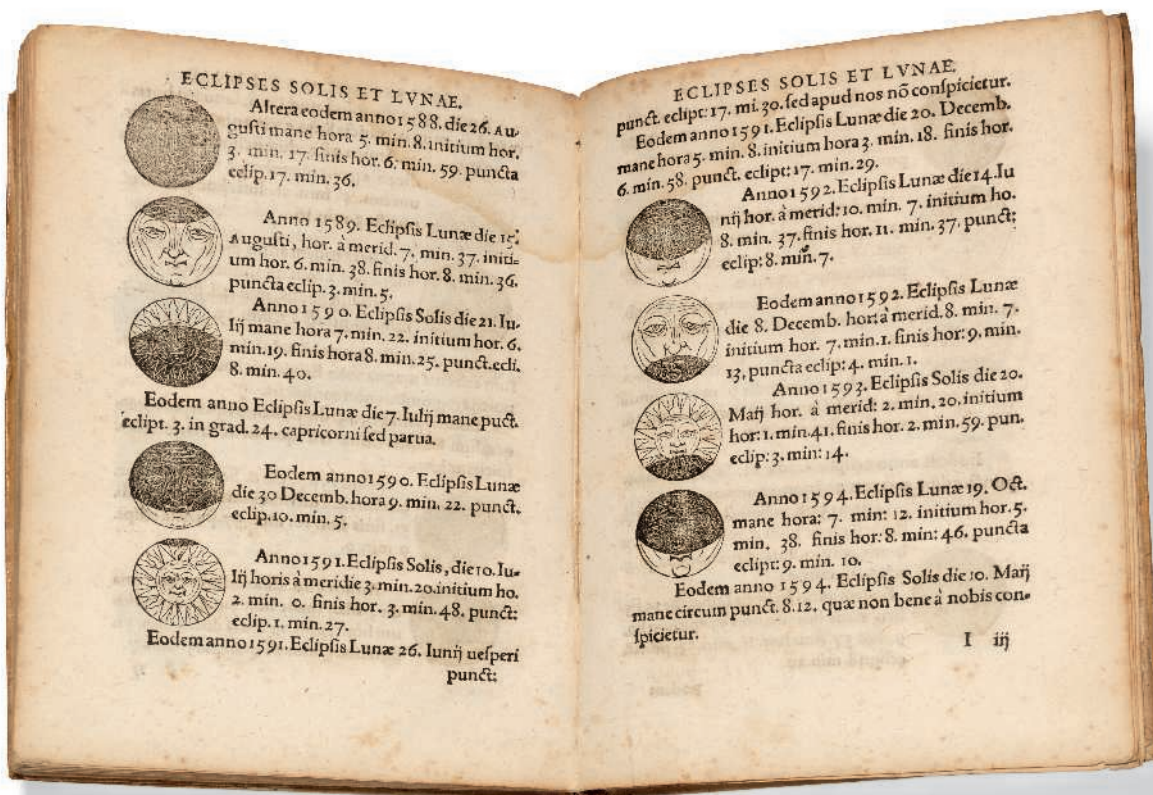 ECLIPSES SOLIS ET LVNAE.
Altera eodem anno 1588. die 26. Au-
gusti mane hora 5. min. 8. initium hor.
3. min. 17. finis hor. 6. min. 59. puncta
eclip. 17. min. 36.
Anno 1589. Eclipsis Lunæ die 15.
Augusti, hor. à merid. 7. min. 37. initi-
um hor. 6. min. 38. finis hor. 8. min. 36.
puncta eclip. 3. min. 5.
Anno 1590. Eclipsis Solis die 21. Iu-
lij mane hora 7. min. 22. initium hor. 6.
min. 19. finis hora 8. min. 25. punct. ecli.
8. min. 40.
Eodem anno Eclipsis Lunæ die 7. Iulij mane pūct.
eclipt. 3. in grad. 24. capricorni sed parua.
Eodem anno 1590. Eclipsis Lunæ
die 30 Decemb. hora 9. min. 22. punct.
eclip. 10. min. 5.
Anno 1591. Eclipsis Solis, die 10. Iu-
lij horis à meridie 3. min. 20. initium ho.
2. min. 0. finis hor. 3. min. 48. punct:
eclip. 1. min. 27.
Eodem anno 1591. Eclipsis Lunæ 26. Iunij uesperi
punct:
ECLIPSES SOLIS ET LVNAE.
punct. eclipt: 17. mi. 30. sed apud nos nō conspicietur.
Eodem anno 1591. Eclipsis Lunæ die 20. Decemb.
mane hora 5. min. 8. initium hora 3. min. 18. finis hor.
6. min. 58. punct. eclipt: 17. min. 29.
Anno 1592. Eclipsis Lunæ die 14. Iu
nij hor. à merid: 10. min. 7. initium ho.
8. min. 37. finis hor. 11. min. 37. punct:
eclip: 8. min. 7.
Eodem anno 1592. Eclipsis Lunæ
die 8. Decemb. hor: à merid. 8. min. 7.
initium hor. 7. min. 1. finis hor: 9. min.
13. puncta eclip: 4. min. 1.
Anno 1593. Eclipsis Solis die 20.
Maij hor. à merid: 2. min. 20. initium
hor: 1. min. 41. finis hor. 2. min. 59. pun.
eclip: 3. min: 14.
Anno 1594. Eclipsis Lunæ 19. Oct.
mane hora: 7. min: 12. initium hor. 5.
min. 38. finis hor: 8. min: 46. puncta
eclipt: 9. min. 10.
Eodem anno 1594. Eclipsis Solis die 10. Maij
mane circum punct. 8. 12. quæ non bene à nobis con-
spicietur.
I iij